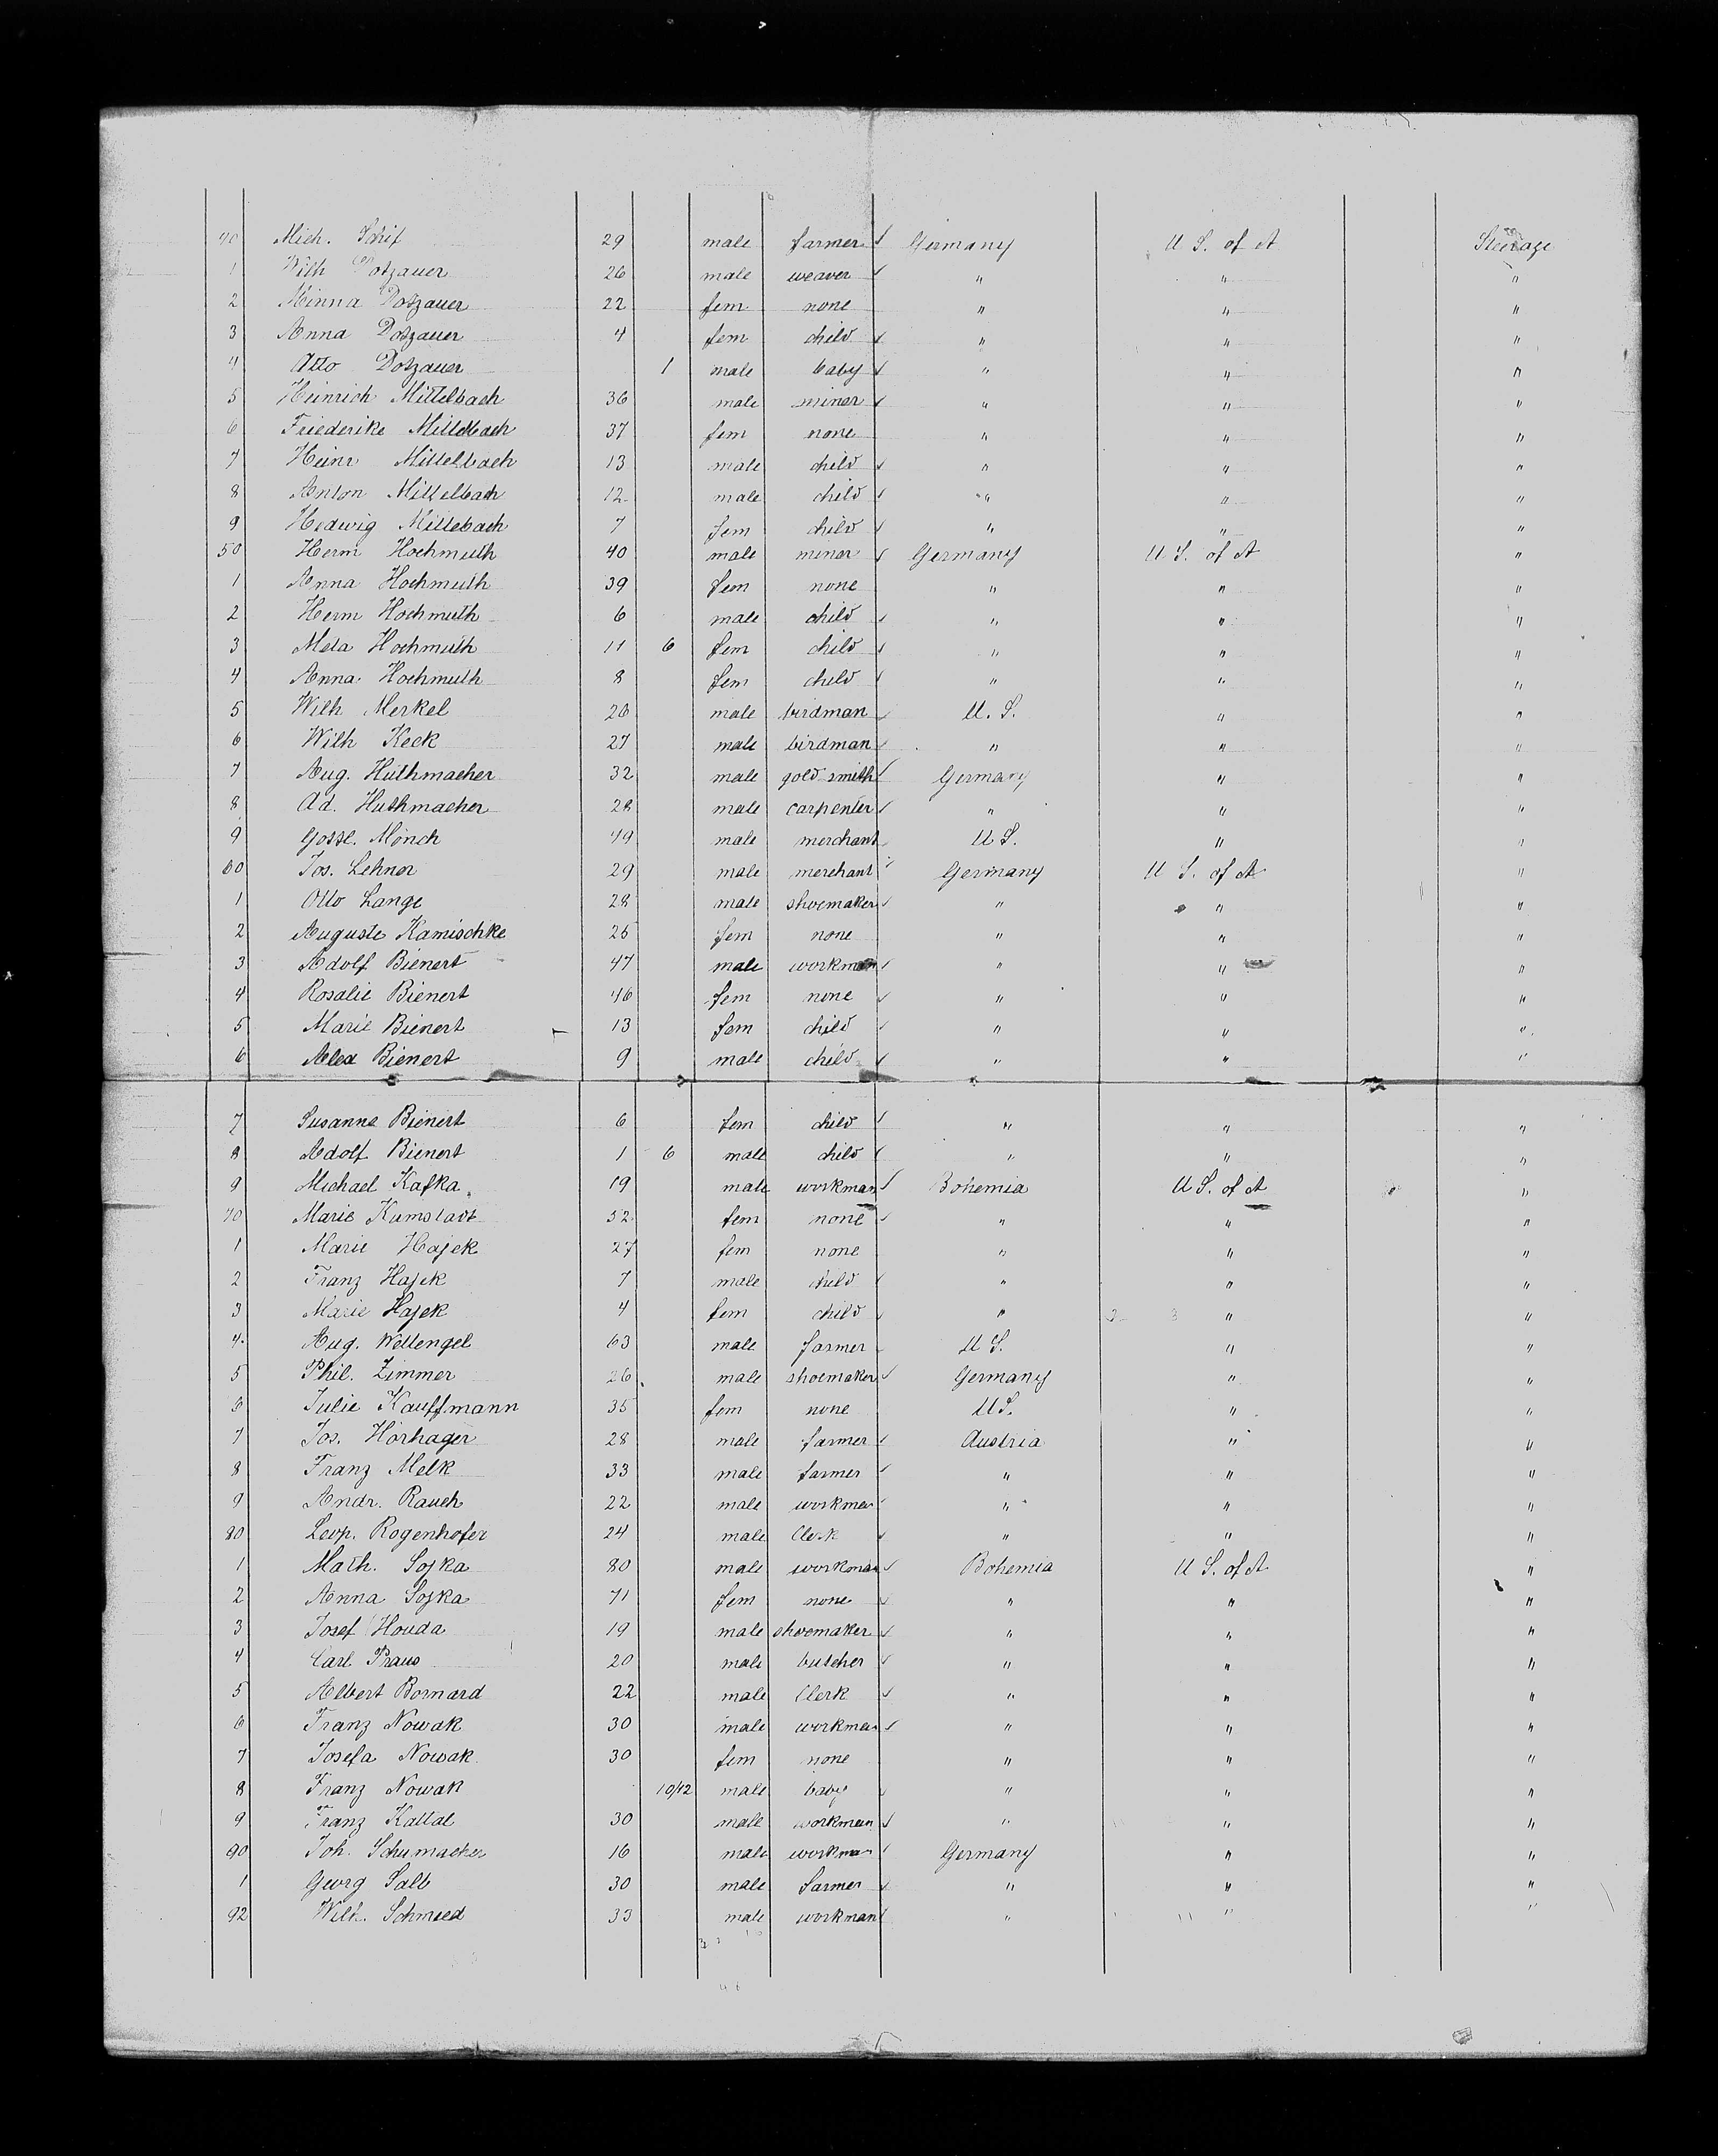 40 Mich. Schif 29 male farmer Germany U S. of A Steerage
1 Wilh Dotzauer 26 male weaver " " "
2 Minna Dotzauer 22 fem none " " "
3 Anna Dotzauer 4 fem child " " "
4 Otto Dotzauer 1 male baby " " "
5 Heinrich Mittelbach 36 male miner " " "
6 Friederike Mittelbach 37 fem none " " "
7 Heinr Mittelbach 13 male child " " "
8 Anton Mittelbach 12 male child " " "
9 Hedwig Mittebach 7 fem child " " "
50 Herm Hochmuth 40 male miner Germany U S. of A "
1 Anna Hochmuth 39 fem none " " "
2 Herm Hochmuth 6 male child " " "
3 Meta Hochmuth 11 6 fem child " " "
4 Anna Hochmuth 8 fem child " " "
5 Wilh Merkel 26 male birdman U. S. " "
6 Wilh Keck 27 male birdman " " "
7 Aug. Huthmacher 32 male gold smith Germany " "
8 Ad. Huthmacher 28 male carpenter " " "
9 Gottl. Mönch 49 male merchant U S. " "
60 Jos. Lehner 29 male merchant Germany U S. of A "
1 Otto Lange 28 male shoemaker " " "
2 Auguste Kamischke 25 fem none " " "
3 Adolf Bienert 47 male workman " " "
4 Rosalie Bienert 46 fem none " " "
5 Marie Bienert 13 fem child " " "
6 Alex Bienert 9 male child " " "
7 Susanne Bienert 6 fem child " " "
8 Adolf Bienert 1 6 male child " " "
9 Michael Kafka 19 male workman Bohemia U S. of A "
70 Marie Kumstadt 52 fem none " " "
1 Marie Hajek 27 fem none " " "
2 Franz Hajek 7 male child " " "
3 Marie Hajek 4 fem child " " "
4. Aug. Wettengel 63 male farmer U S. " "
5 Phil. Zimmer 26 male shoemaker Germany " "
6 Julie Kauffmann 35 fem none U S. " "
7 Jos. Hörhager 28 male farmer Austria " "
8 Franz Melk 33 male farmer " " "
9 Andr. Rauch 22 male workman " " "
80 Leop. Rogenhofer 24 male Clerk " " "
1 Math. Sojka 80 male workman Bohemia U S. of A "
2 Anna Sojka 71 fem none " " "
3 Josef Houda 19 male shoemaker " " "
4 Carl Praus 20 male butcher " " "
5 Albert Bornard 22 male Clerk " " "
6 Franz Nowak 30 male workman " " "
7 Josefa Nowak 30 fem none " " "
8 Franz Nowak 10/12 male baby " " "
9 Franz Kattal 30 male workman " " "
90 Joh. Schumacher 16 male workman Germany " "
1 Georg Salb 30 male farmer " " "
92 Wilh. Schmied 33 male workman " " "